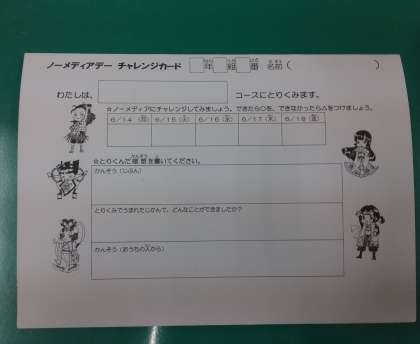 ノーメディアデー チャレンジカード 年 組 番 名前( )
わたしは、 コースにとりくみます。
☆ノーメディアにチャレンジしてみましょう。できたら○を、できなかったら△をつけましょう。
6/14 (月) 6/15 (火) 6/16 (水) 6/17 (木) 6/18 (金)
☆とりくんだ感想を書いてください。
かんそう(じぶん)
とりくみでうまれたじかんで、どんなことができましたか?
かんそう(おうちの人から)